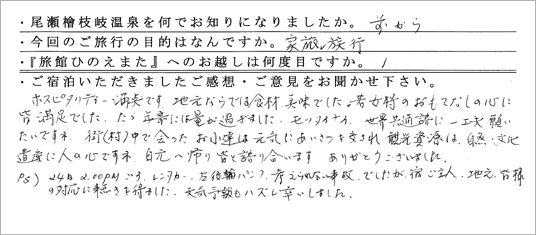 ・尾瀬檜枝岐温泉を何でお知りになりましたか。 前から
・今回のご旅行の目的はなんですか。家族旅行
・『旅館ひのえまた』へのお越しは何度目ですか。 1
・ご宿泊いただきましたご感想・ご意見をお聞かせ下さい。
ホスピタリティー満天です 地元ならでは食材 美味でした 若女将のおもてなしの心に
皆満足でした。ただ年寄には量が過ぎました。モッタイナイ 世界共通語に一工夫願い
たいですネ。街(村)中で会ったお小達は元気にあいさつを交され 観光資源は、自然、文化
遺産に人の心ですネ 自元へ帰り皆と語り合います ありがとうございました。
PS) 24日 2.00PMごろ、レンタカー 左後輪パンク、考えられない事故、でしたが 宿ご主人、地元、皆様
の対応に事きを得ました、天気予報もハズレ幸いしました。